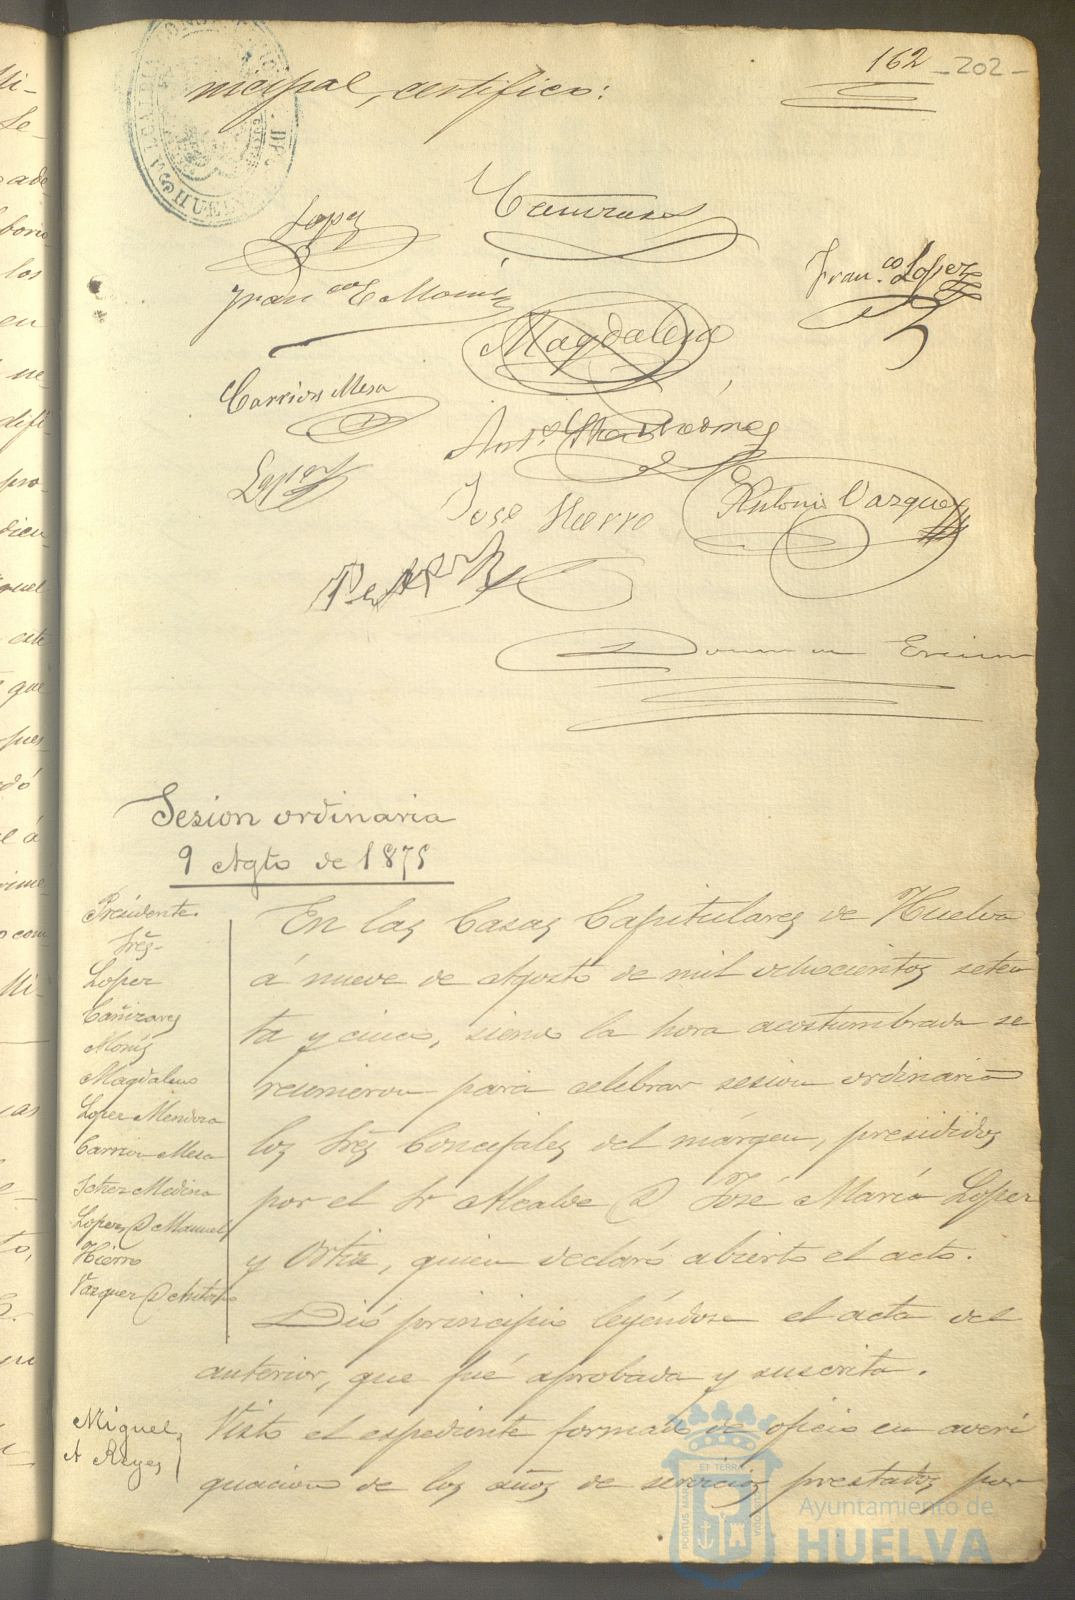 162 -202-
nicipal, certifico:
Lopez
Cañizares
Fran.co Lopez
Fran.co E Monis
Magdalena
Carrion Mesa
Ant.o
Lopez
Jose Hierro
Antonio Vazquez
Sesion ordinaria
9 Agto de 1875
Presidente.
Sres.
Lopez
Cañizares
Monis
Magdalena
Lopez Mendoza
Carrion Mesa
Schez Medina
Lopez D Manuel
Hierro
Vazquez D Antonio
En las Casas Capitulares de Huelva
á nueve de Agosto de mil ochocientos seten
ta y cinco, siendo la hora acostumbrada se
reunieron para celebrar sesion ordinaria
los Sres Concejales del márgen, presididos
por el Sr Alcalde D José María Lopez
y Ortiz, quien declaró abierto el acto.
Dió principio leyéndose el acta del
anterior, que fué aprobada y suscrita.
Miguel
A Reyes
Visto el espediente formado de oficio en averi
guacion de los años de servicios prestados por
Ayuntamiento de
HUELVA